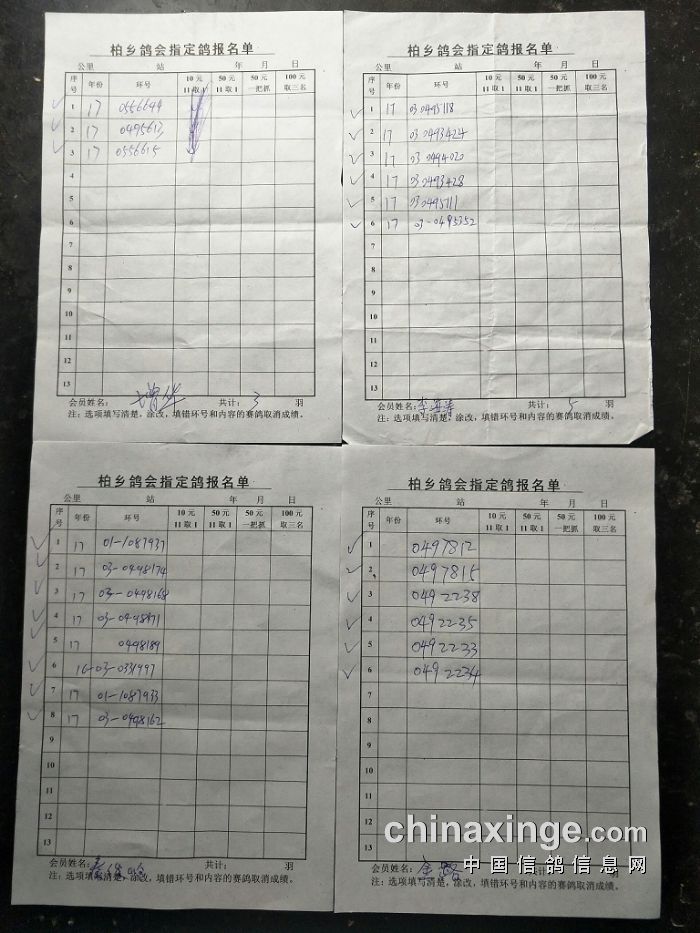 柏乡鸽会指定鸽报名单
公里 站 年 月 日
序号 年份 环号 10元11取1 50元11取1 50元一把抓 100元取三名
1 17 0556644
2 17 0495613
3 17 0556615
4
5
6
7
8
9
10
11
12
13
会员姓名: 共计: 3 羽
注:选项填写清楚,涂改,填错环号和内容的赛鸽取消成绩。
柏乡鸽会指定鸽报名单
公里 站 年 月 日
序号 年份 环号 10元11取1 50元11取1 50元一把抓 100元取三名
1 17 030495118
2 17 030493424
3 17 030494020
4 17 030493428
5 17 030495111
6 17 03-0495352
7
8
9
10
11
12
13
会员姓名: 共计: 5 羽
注:选项填写清楚,涂改,填错环号和内容的赛鸽取消成绩。
柏乡鸽会指定鸽报名单
公里 站 年 月 日
序号 年份 环号 10元11取1 50元11取1 50元一把抓 100元取三名
1 17 01-1087937
2 17 03-0498174
3 17 03-0498168
4 17 03-0498171
5 17 0498189
6 16-03-0331997
7 17 01-1087933
8 17 03-0498162
9
10
11
12
13
会员姓名: 共计: 羽
注:选项填写清楚,涂改,填错环号和内容的赛鸽取消成绩。
柏乡鸽会指定鸽报名单
公里 站 年 月 日
序号 年份 环号 10元11取1 50元11取1 50元一把抓 100元取三名
1 0497812
2 0497815
3 0492238
4 0492235
5 0492233
6 0492234
7
8
9
10
11
12
13
会员姓名: 共计: 羽
注:选项填写清楚,涂改,填错环号和内容的赛鸽取消成绩。
chinaxinge.com
中国信鸽信息网